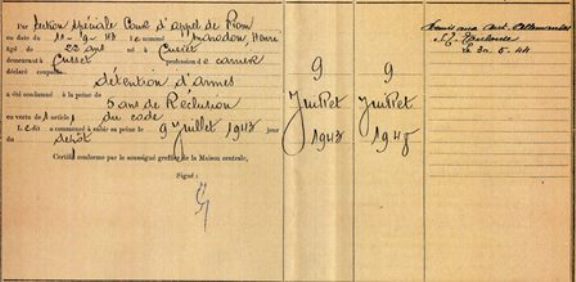 Par Section Spéciale Cour d'appel de Riom
en date du 10-9-43 le nommé Marodon, Henri
âgé de 22 ans né à Cusset
demeurant à Cusset profession de carrier
déclaré coupable
détention d'armes
a été condamné à la peine de
5 ans de Réclusion
en vertu de l article du code
L edit a commencé à subir sa peine le 9 Juillet 1943 jour
du dépôt
Certifié conforme par le soussigné greffier de la Maison centrale,
Signé :
9
Juillet
1943
9
Juillet
1948
Remis aux Aut. Allemandes
Toulouse
le 30-5-44